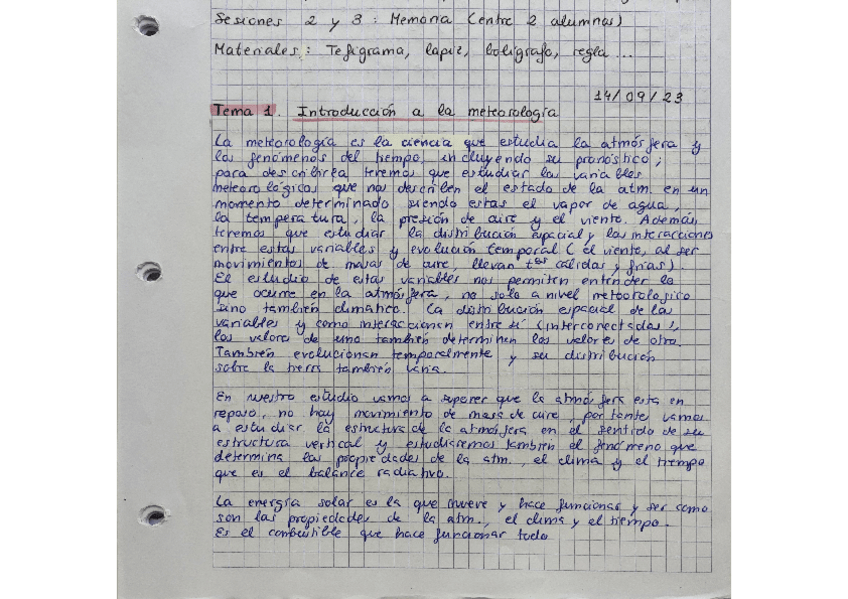 Sesiones 2 y 3: Memoria (entre 2 alumnos)
Materiales: Tefigrama, lápiz, bolígrafo, regla ...
14/09/23
Tema 1. Introducción a la meteorología
La meteorología es la ciencia que estudia la atmósfera y
los fenómenos del tiempo, incluyendo su pronóstico;
para describirla tenemos que estudiar las variables
meteorológicas que nos describen el estado de la atm. en un
momento determinado siendo estas el vapor de agua,
la temperatura, la presión de aire y el viento. Además
tenemos que estudiar la distribución espacial y las interacciones
entre estas variables y evolución temporal (el viento, al ser
movimientos de masas de aire, llevan tas cálidas y frías).
El estudio de estas variables nos permiten entender lo
que ocurre en la atmósfera, no solo a nivel meteorológico
sino también climático. La distribución espacial de las
variables y como interaccionan entre sí (interconectadas),
los valores de una también determinen los valores de otra.
También evolucionan temporalmente y su distribución
sobre la tierra también varía.
En nuestro estudio vamos a suponer que la atmósfera esta en
reposo, no hay movimiento de masa de aire, por tanto, vamos
a estudiar la estructura de la atmósfera en el sentido de su
estructura vertical y estudiaremos también el fenómeno que
determina las propiedades de la atm., el clima y el tiempo
que es el balance radiativo.
La energía solar es la que mueve y hace funcionar y ser como
son las propiedades de la atm., el clima y el tiempo.
Es el combustible que hace funcionar todo